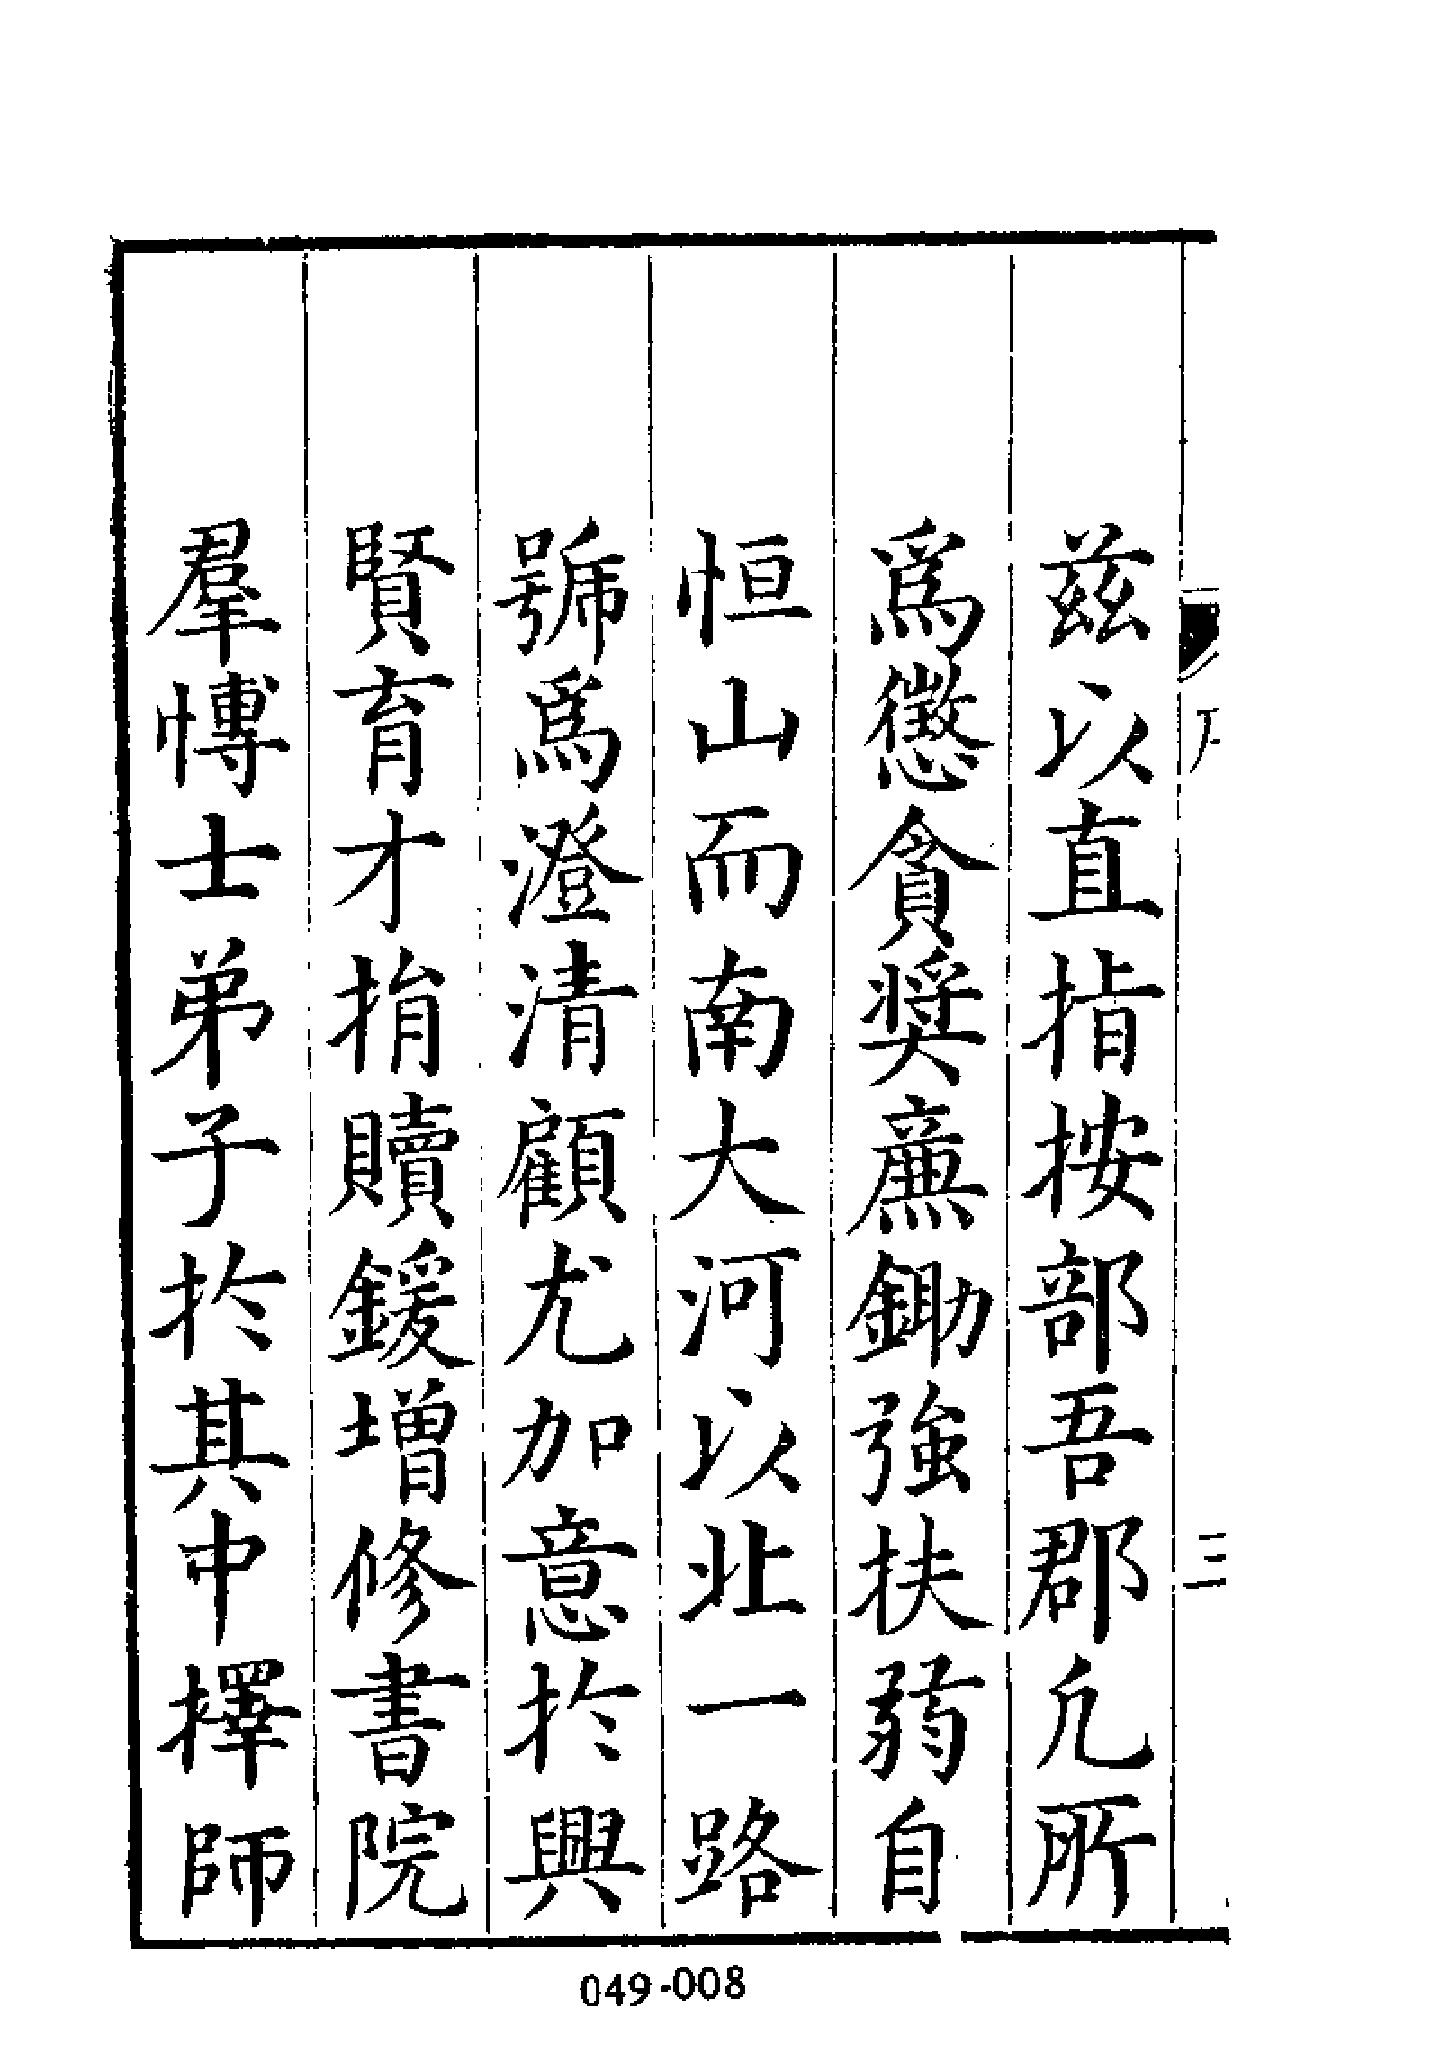 兹以直指按部吾郡凢所
爲懲貪奨廉鋤強扶弱自
恒山而南大河以北一路
號爲澄清顧尤加意於興
賢育才捐贖鍰増修書院
羣博士弟子於其中擇師
三
049-008